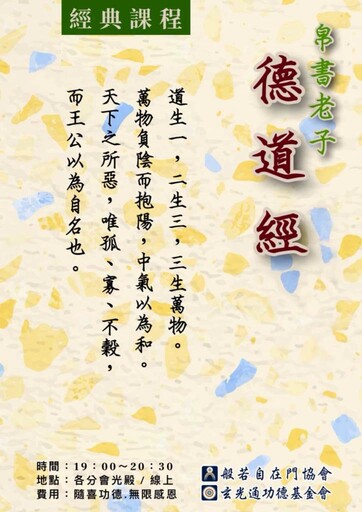 經典課程
帛書老子
德道經
道生一，二生三，三生萬物。
萬物負陰而抱陽，中氣以為和。
天下之所惡，唯孤、寡、不穀，
而王公以為自名也。
時間：19：00～20：30
地點：各分會光殿 / 線上
費用：隨喜功德.無限感恩
般若自在門協會
玄光通功德基金會